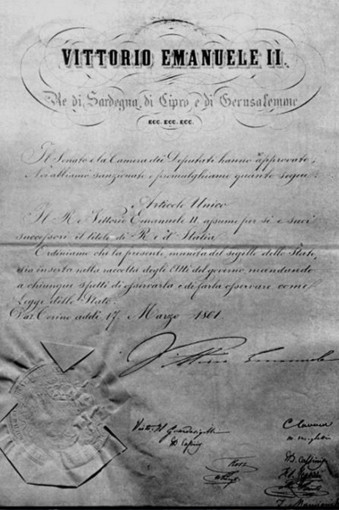 VITTORIO EMANUELE II.
Re di Sardegna, di Cipro, e di Gerusalemme
ECC. ECC. ECC.
Il Senato e la Camera dei Deputati hanno approvato,
Noi abbiamo sanzionato e promulghiamo quanto segue:
Articolo Unico
Il Re Vittorio Emanuele II assume per sè e suoi
successori il titolo di Re d'Italia
Ordiniamo che la presente, munita del sigillo dello Stato,
sia inserta nella raccolta degli Atti del governo, mandando
a chiunque spetti di osservarla e di farla osservare come
Legge dello Stato.
Dat. Torino addì 17 Marzo 1861
Vittorio Emanuele